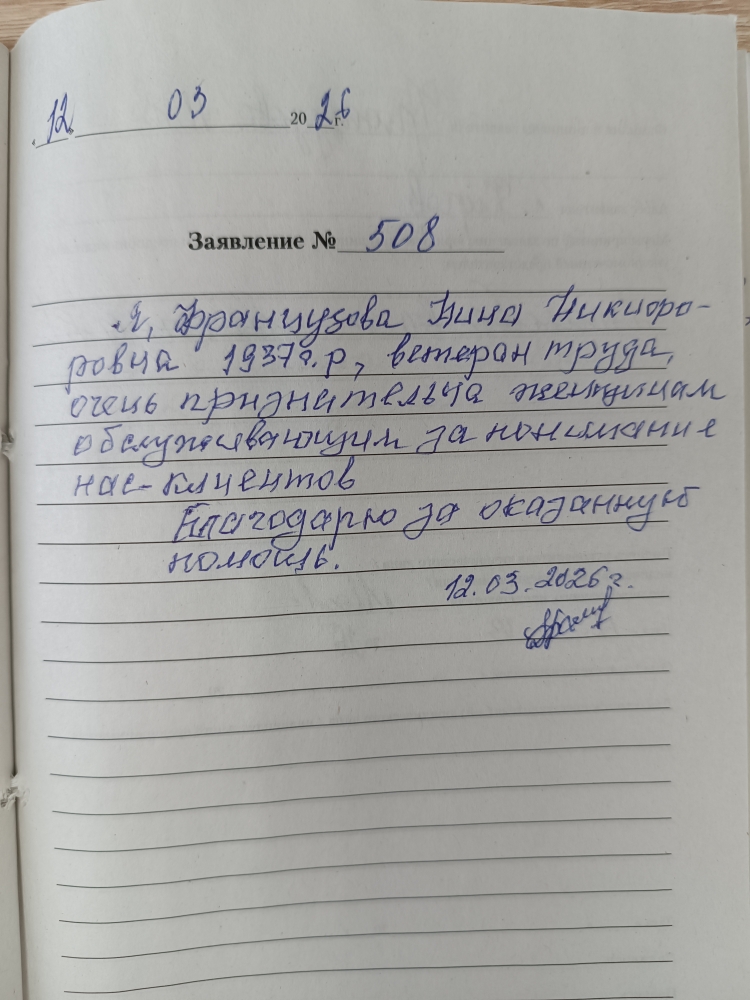 «12» 03 2026 г.
Заявление № 508
Я, Французова Нина Никифо-
ровна 1937г.р, ветеран труда,
очень признательна женщинам
обслуживающим за понимание
нас-клиентов
Благодарю за оказанную
помощь.
12.03.2026 г.